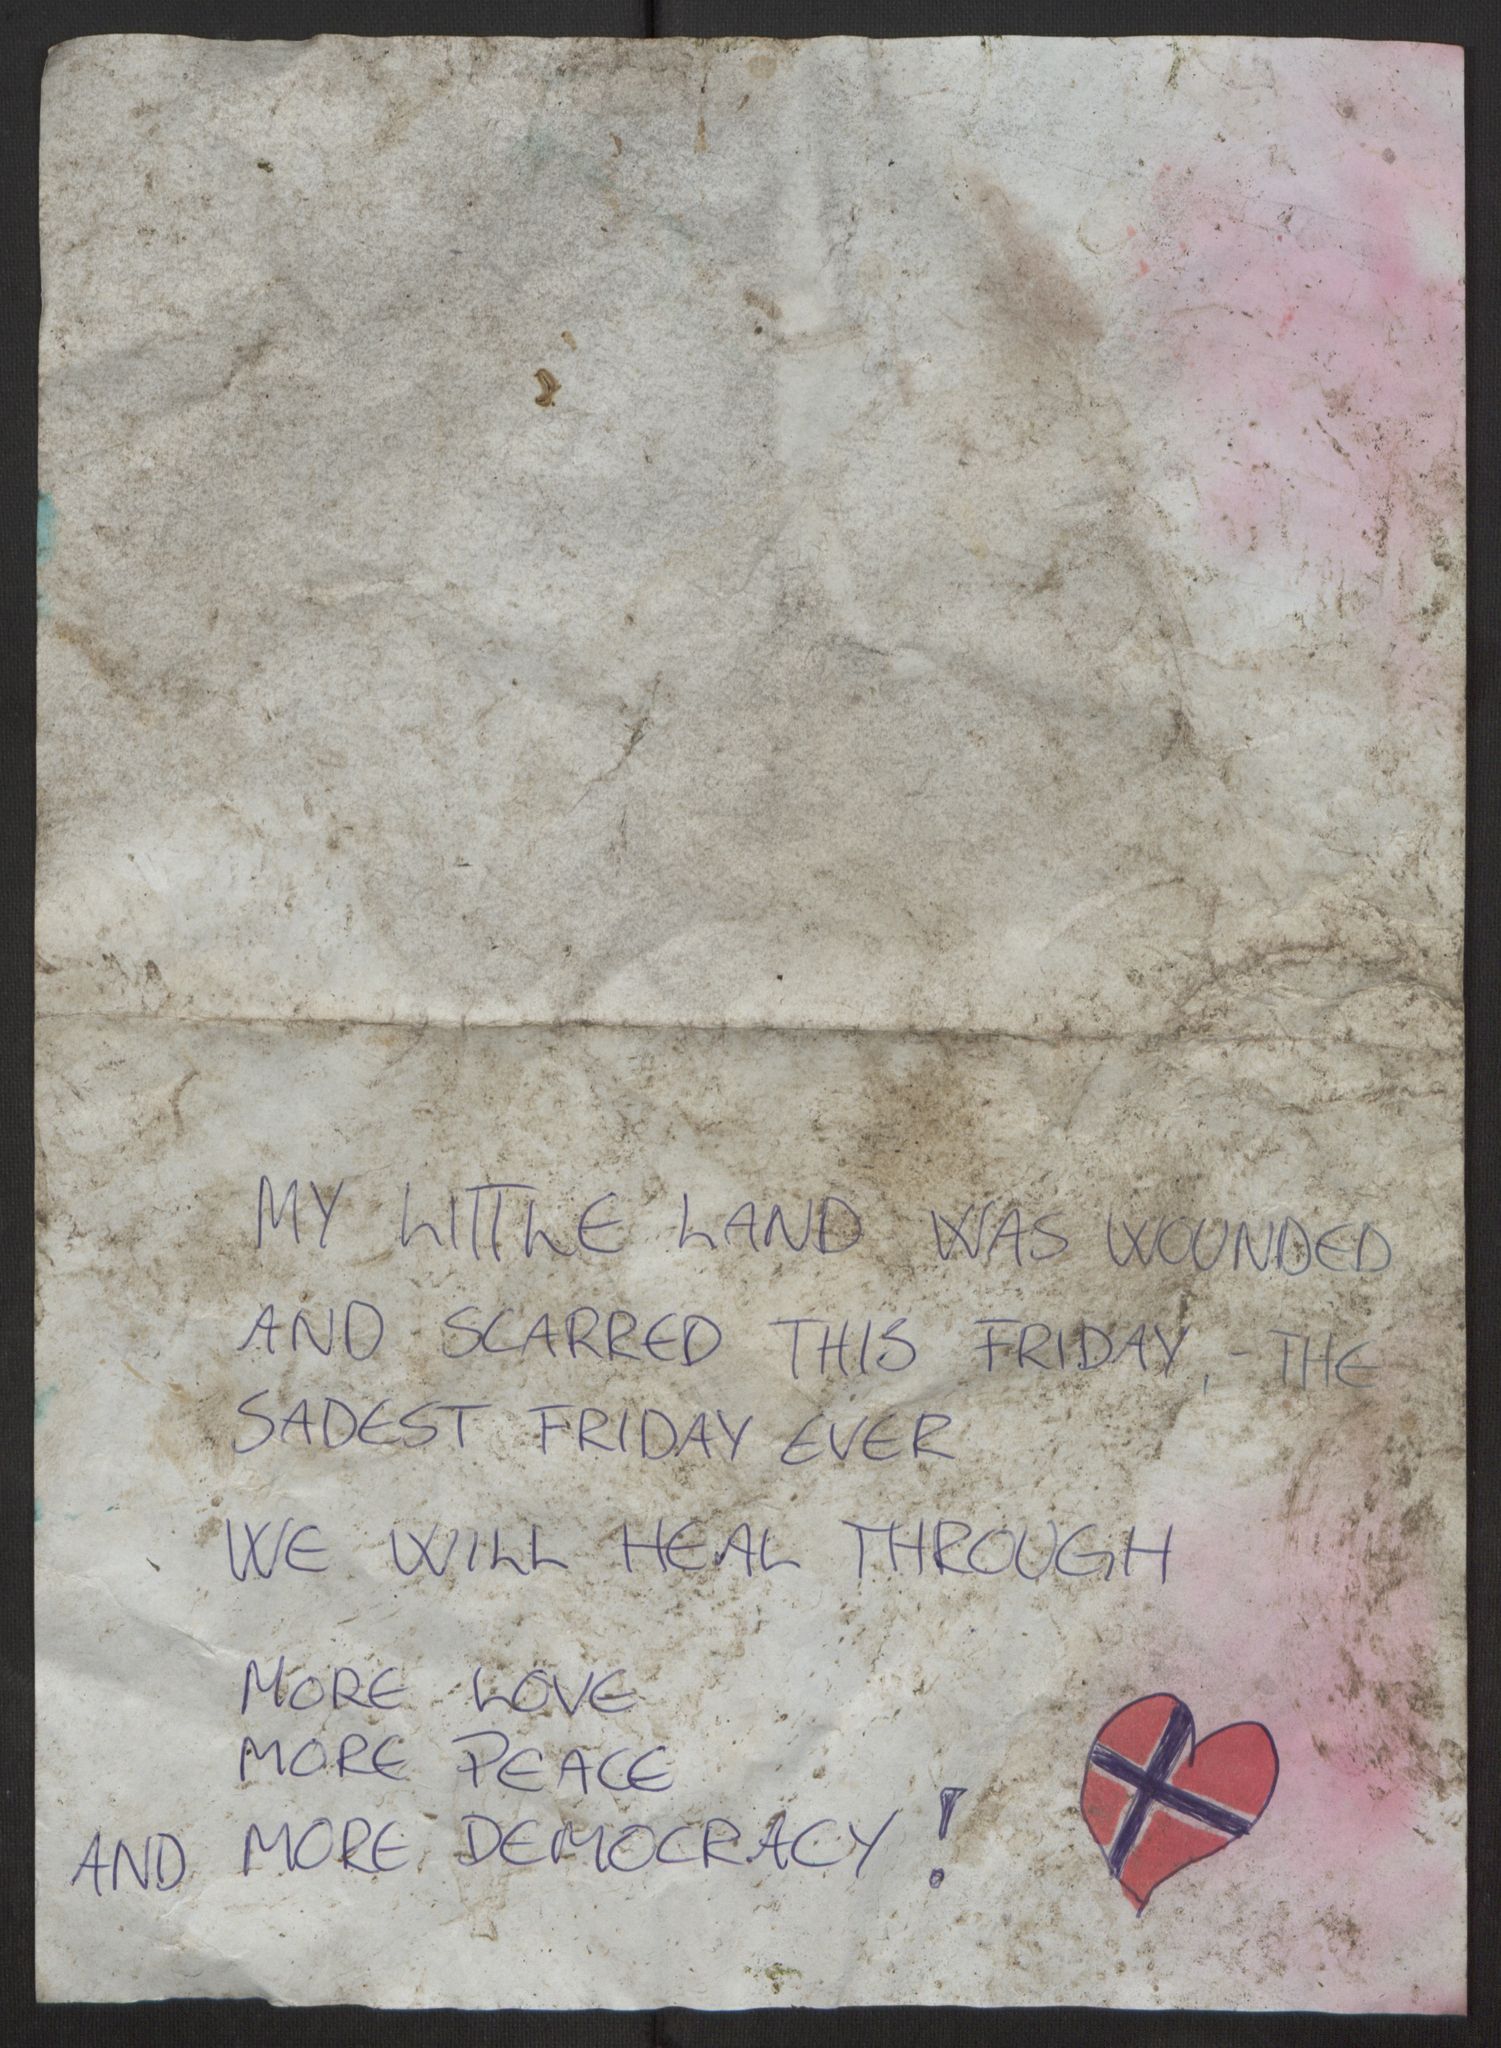 MY LITTLE LAND WAS WOUNDED
AND SCARRED THIS FRIDAY, - THE
SADEST FRIDAY EVER
WE WILL HEAL THROUGH
MORE LOVE
MORE PEACE
AND MORE DEMOCRACY!